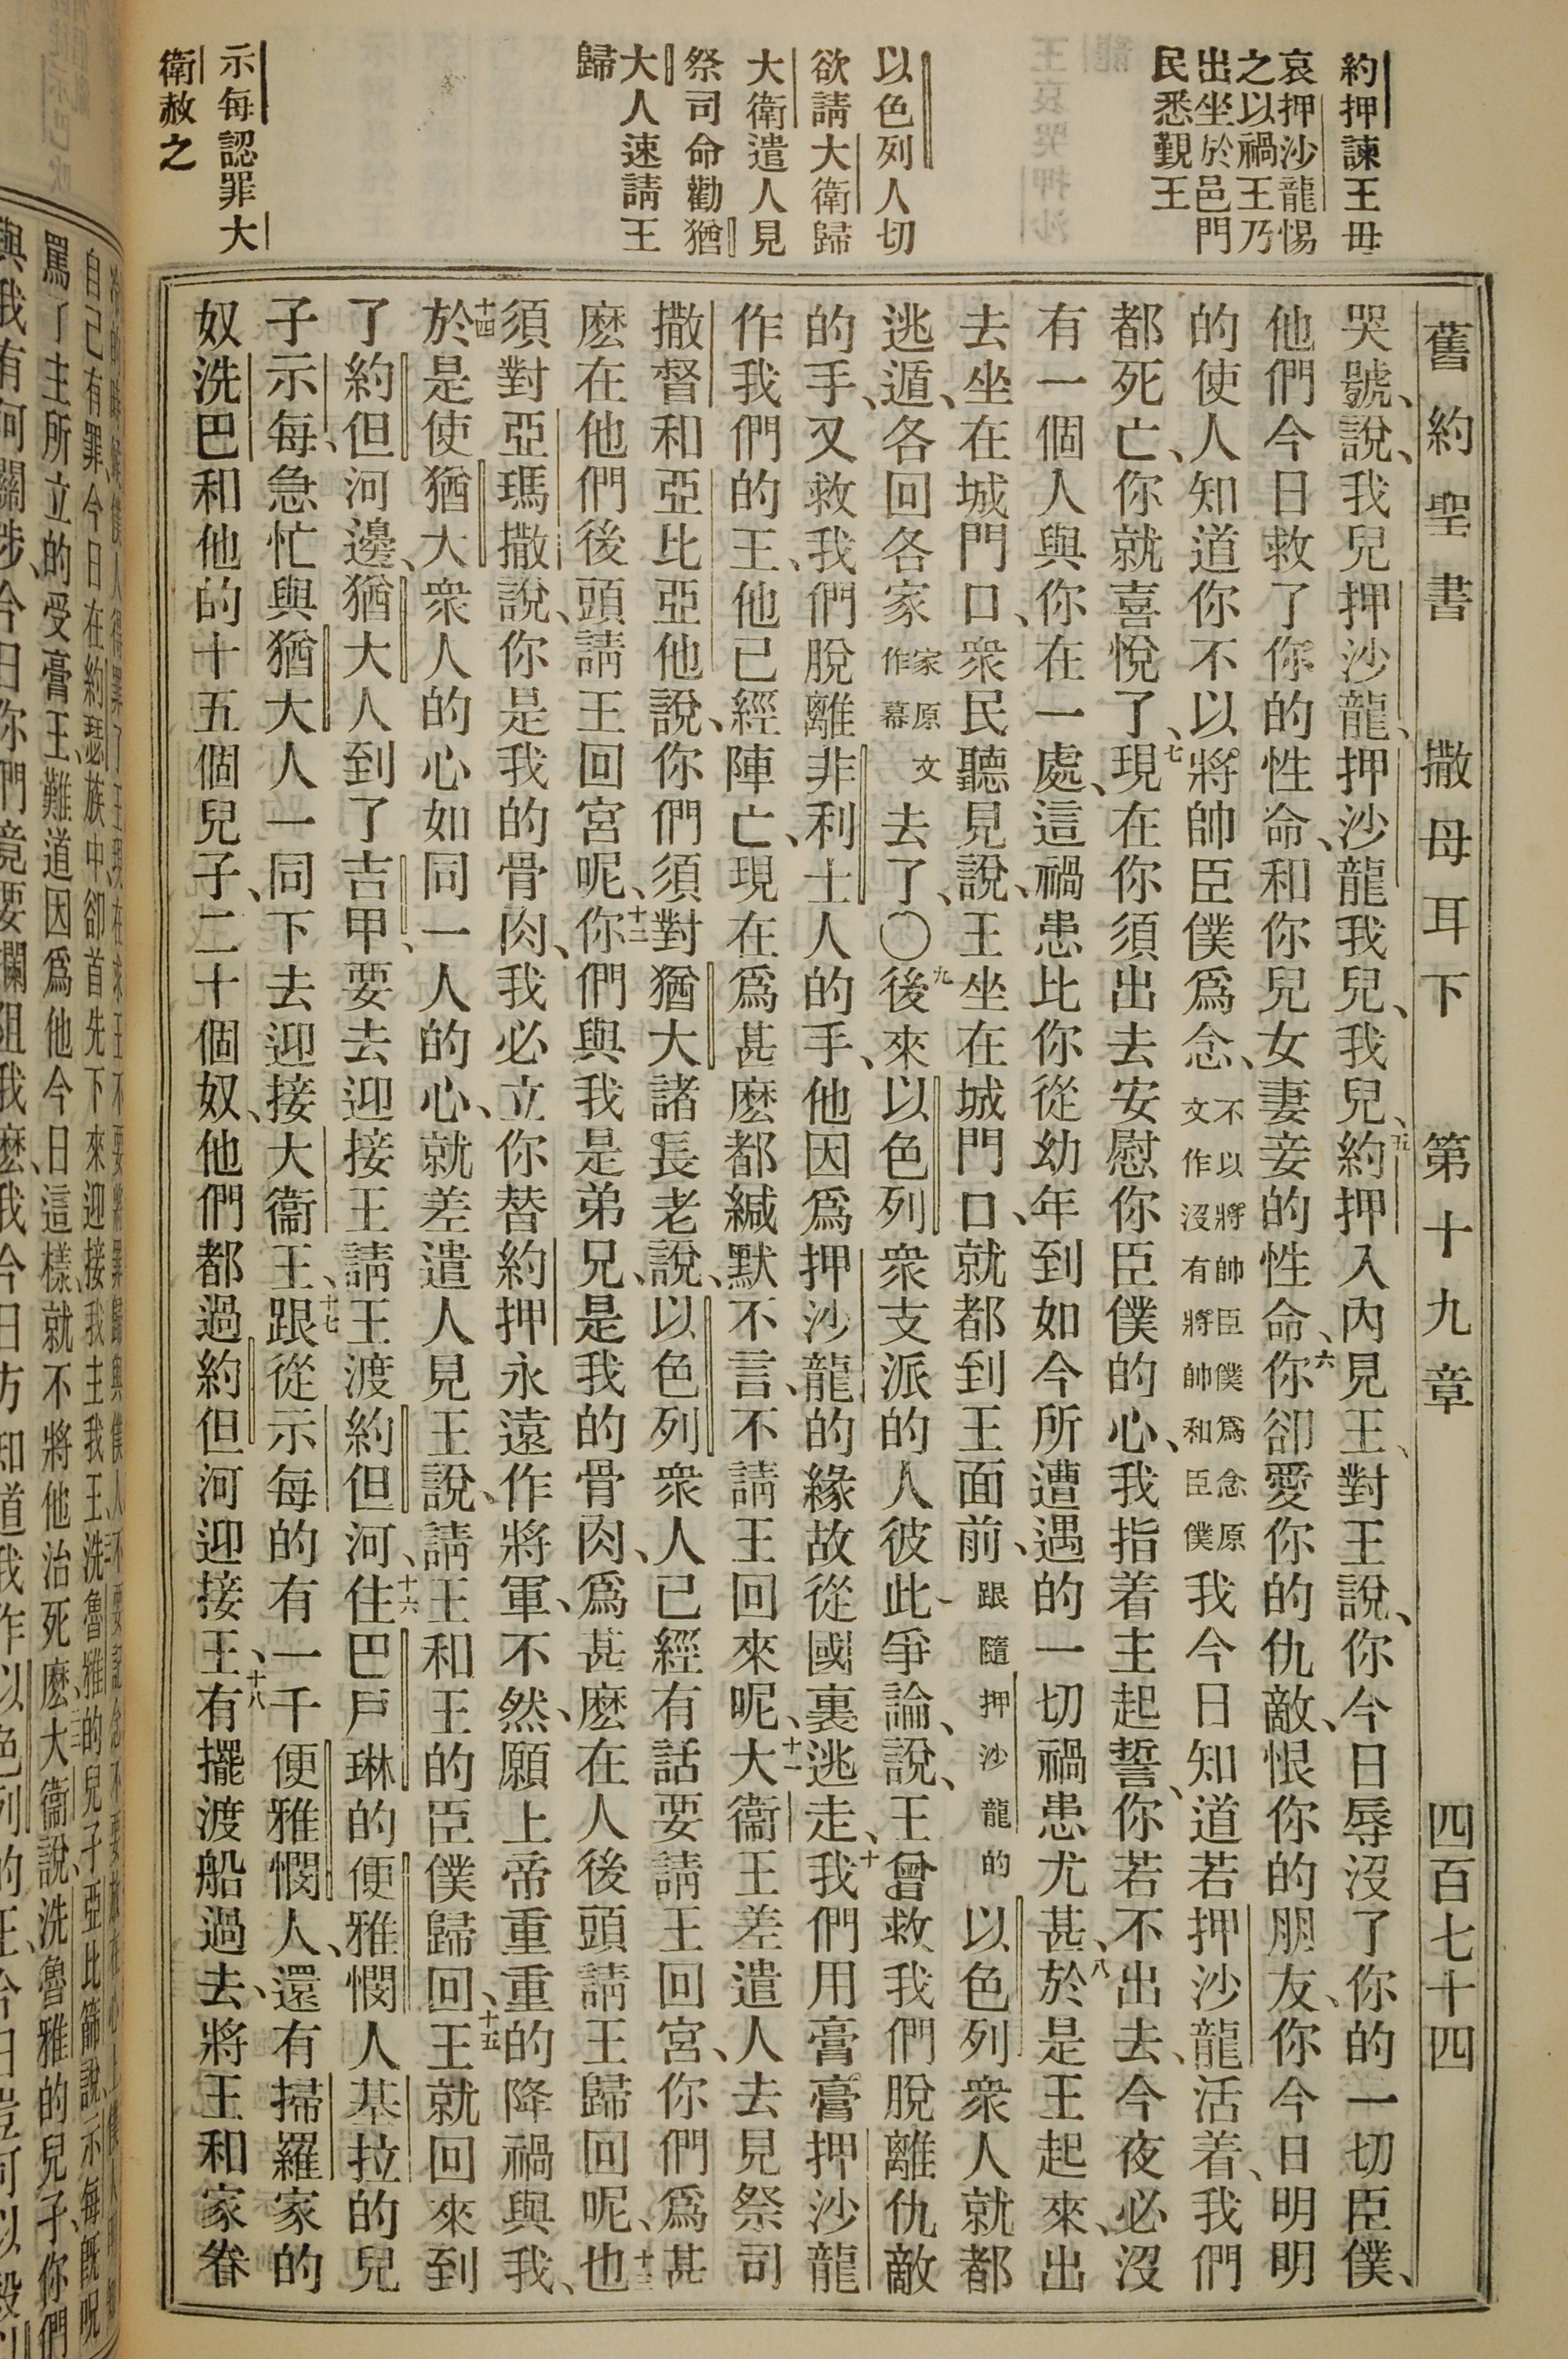 約押諫王毋
哀押沙龍惕
之以禍王乃
出坐於邑門
民悉覲王
以色列人切
欲請大衛歸
大衛遣人見
祭司命勸猶
大人速請王
歸
示每認罪大
衛赦之
舊約聖書 撒母耳下 第十九章 四百七十四
哭號、說、我兒押沙龍、押沙龍我兒、我兒、五約押入內見王、對王說、你今日辱沒了你的一切臣僕、
他們今日救了你的性命、和你兒女妻妾的性命、六你卻愛你的仇敵、恨你的朋友、你今日明明
的使人知道你不以將帥臣僕爲念、不以將帥臣僕爲念原文作沒有將帥和臣僕我今日知道若押沙龍活着、我們
都死亡、你就喜悅了、七現在你須出去安慰你臣僕的心、我指着主起誓、你若不出去、今夜必沒
有一個人與你在一處、這禍患比你從幼年到如今所遭遇的一切禍患尤甚、八於是王起來、出
去坐在城門口、衆民聽見說、王坐在城門口、就都到王面前、跟隨押沙龍的以色列衆人就都
逃遁、各回各家家原文作幕去了、〇九後來以色列衆支派的人彼此爭論、說、王曾救我們脫離仇敵
的手、又救我們脫離非利士人的手、他因爲押沙龍的緣故從國裏逃走、十我們用膏膏押沙龍
作我們的王、他已經陣亡、現在爲甚麽都緘默不言、不請王回來呢、十一大衞王差遣人去見祭司
撒督和亞比亞他說、你們須對猶大諸長老說、以色列衆人已經有話要請王回宮、你們爲甚
麽在他們後頭請王回宮呢、十二你們與我是弟兄、是我的骨肉、爲甚麽在人後頭請王歸回呢、十三也
須對亞瑪撒說、你是我的骨肉、我必立你替約押永遠作將軍、不然、願上帝重重的降禍與我、
十四於是使猶大衆人的心如同一人的心、就差遣人見王說、請王和王的臣僕歸回、十五王就回來到
了約但河邊、猶大人到了吉甲、要去迎接王請王渡約但河、十六住巴戶琳的便雅憫人基拉的兒
子示每、急忙與猶大人一同下去迎接大衞王、十七跟從示每的有一千便雅憫人、還有掃羅家的
奴洗巴和他的十五個兒子、二十個奴、他們都過約但河迎接王、十八有擺渡船過去、將王和家眷
自己有罪今日在約瑟族中卻首先下來迎接我主我王洗魯雅的兒子亞比篩說、示每旣呪
罵了主所立的受膏王、難道因爲他今日這樣、就不將他治死麽、大衞說、洗魯雅的兒子、你們
與我有何關涉、今日你們竟要攔阻我麽、我今日方知道我作以色列的王、今日豈可以殺